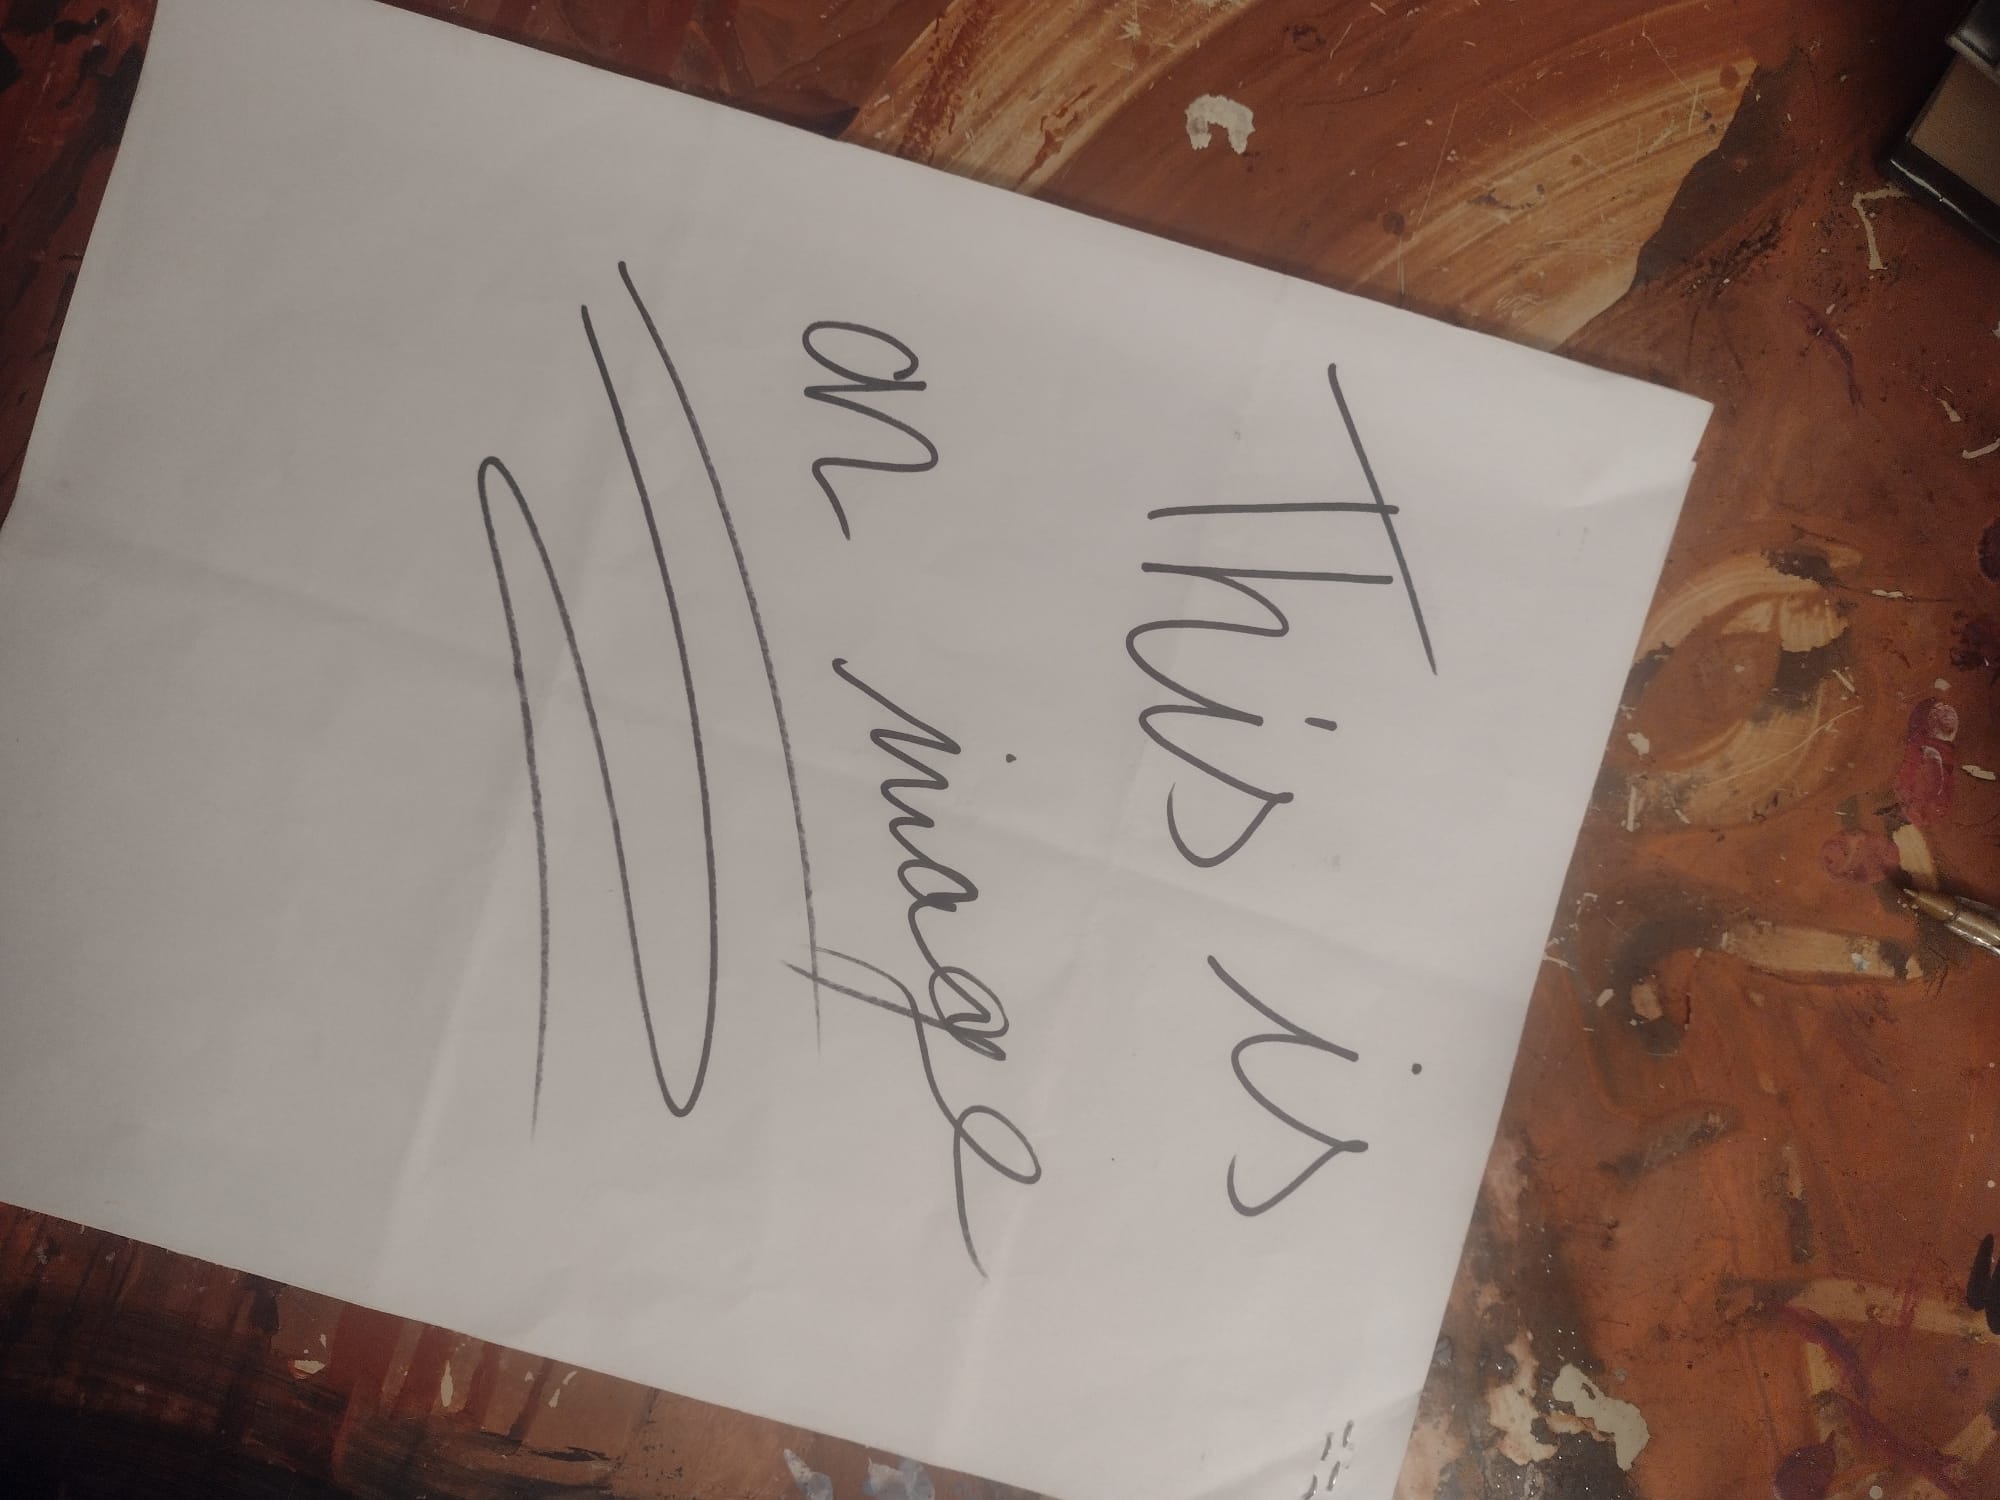 This is
an image